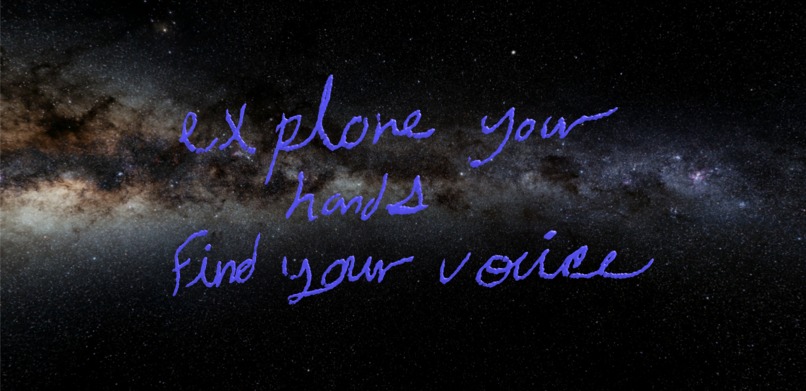 explore your
hands
Find your voice